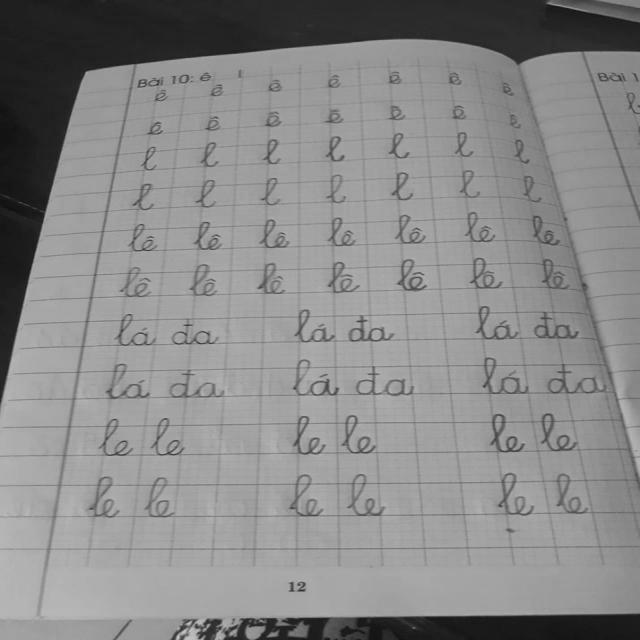 Bài 10: ê l
ê ê ê ê ê ê ê
ê ê ê ê ê ê ê
l l l l l l l
l l l l l l l
lê lê lê lê lê lê lê
lê lê lê lê lê lê lê
lá đa lá đa lá đa
lá đa lá đa lá đa
le le le le le le
le le le le le le
12